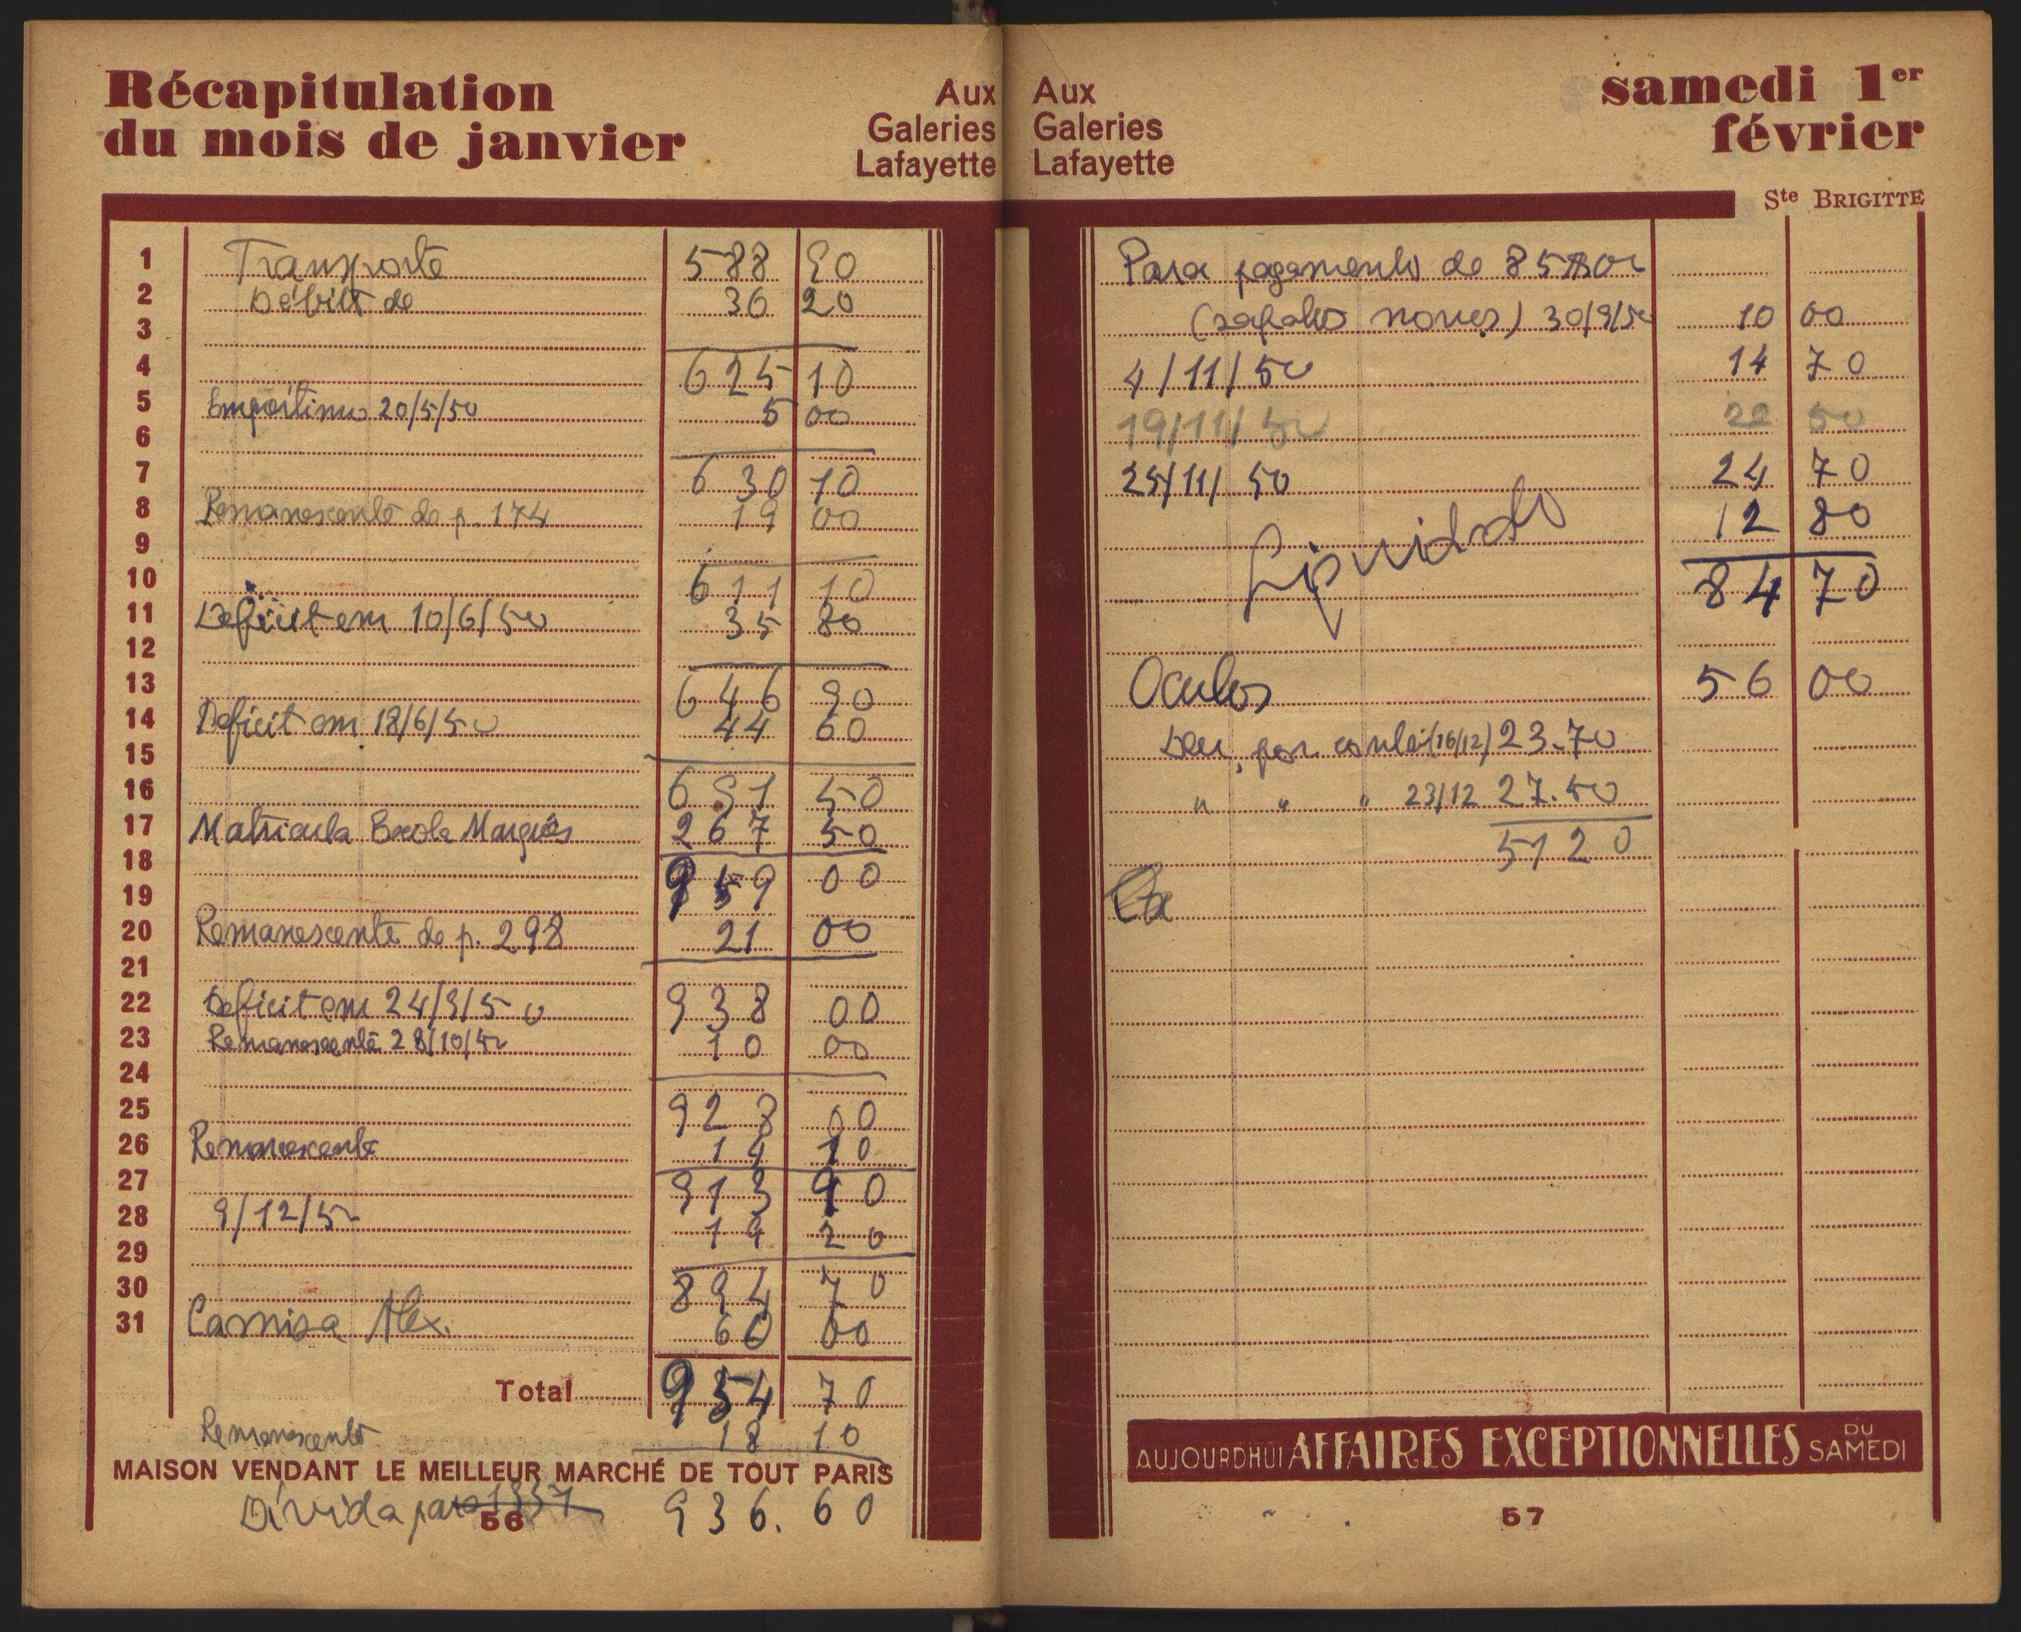 Récapitulation
du mois de janvier
Aux
Galeries
Lafayette
1 Transporte 588 90
2 Débito de 36 20
3
4 625 10
5 Empréstimo 20/5/50 5 00
6
7 630 10
8 Remanescente de p. 174 19 00
9
10 611 10
11 Deficit em 10/6/50 35 80
12
13 646 90
14 Deficit em 18/6/50 44 60
15
16 691 50
17 Matricula Escola Marquês 267 50
18 959 00
19
20 Remanescente de p. 298 21 00
21
22 Deficit em 24/9/50 938 00
23 Remanescente 28/10/50 10 00
24
25 928 00
26 Remanescente 14 10
27 913 90
28 9/12/50 19 20
29
30 894 70
31 Camisa Alex. 60 00
Total 954 70
Remanescente 18 10
MAISON VENDANT LE MEILLEUR MARCHÉ DE TOUT PARIS
Divida para 1337 936.60
56
Aux
Galeries
Lafayette
samedi 1er
février
Ste BRIGITTE
Para pagamento de
(sapatos novos) 30/9/50 10 00
4/11/50 14 70
19/11/50 22 50
25/11/50 24 70
12 80
Liquidado
84 70
Oculos 56 00
Deu, por conta (16/12) 23.70
" " " 23/12 27.50
51 20
AUJOURDHUI AFFAIRES EXCEPTIONNELLES DU SAMEDI
57